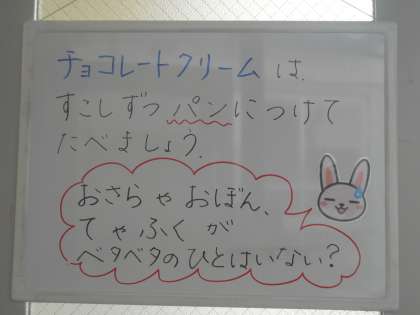 チョコレートクリームは
すこしずつパンにつけて
たべましょう.
おさらやおぼん、
てやふくが
ベタベタのひとはいない?